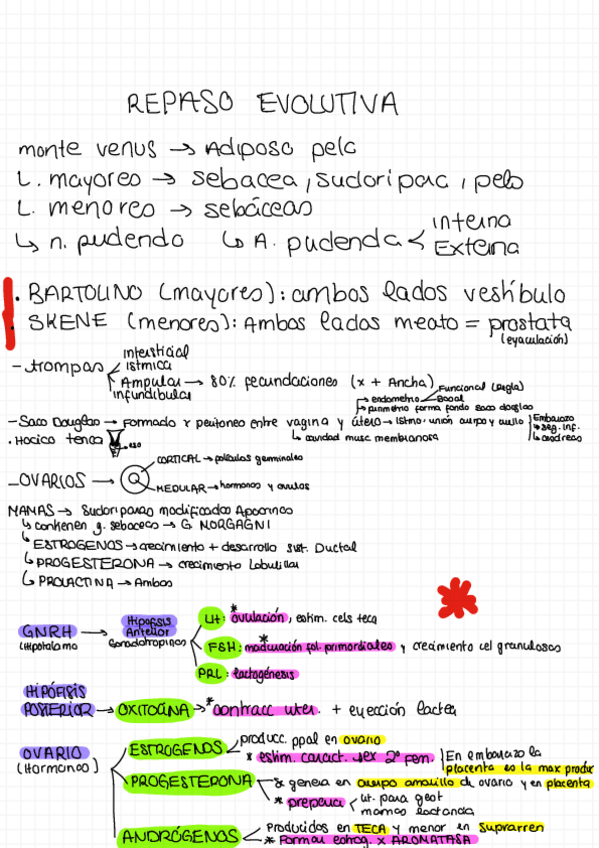 REPASO EVOLUTIVA
monte venus → Adiposo pelo
L. mayores → sebacea, sudoripar, pelo
L. menores → sebáceas
↳ n. pudendo ↳ A. pudenda < Interna
Externa
. BARTOLINO (mayores): ambos lados vestíbulo
. SKENE (menores): Ambos lados meato = prostata
(eyaculación)
- trompas < intersticial
istmica
Ampular → 80% fecundaciones (x + Ancha)
infundibular
Funcional (Regla)
→ endometrio < Basal
→ perimetrio forma fondo saco douglas
- Saco Douglas → Formado x peritoneo entre vagina y útero → istmo: unión cuerpo y cuello
Embarazo
→ seg. inf.
↳ cavidad musc membranosa
. Hocico tenca
- OVARIOS →
CORTICAL → folículos germinales
MEDULAR → hormonas y ovulos
MAMAS → Sudoriparas modificadas Apocrinas
↳ contienen g. sebaceas → G. MORGAGNI
↳ ESTROGENOS → crecimiento + desarrollo sist. Ductal
↳ PROGESTERONA → crecimiento Lobulillar
↳ PROLACTINA → Ambos
GNRH → Hipofisis Anterior
(Hipotalamo
Gonadotropinas
LH: *ovulación, estim. cels teca
FSH: *maduración fol. primordiales y crecimiento cel granulosas
PRL: lactogénesis
HIPÓFISIS
POSTERIOR → OXITOCINA → *contracc uter. + eyección lactea
OVARIO
(Hormonas)
ESTROGENOS < producc. ppal en ovario
* estim. caract. sex 2º Fem.
En embarazo la
placenta es la max produx
PROGESTERONA < * genera en cuerpo amarillo de ovario y en placenta
* prepara < ut. para gest
mamas lactancia
ANDRÓGENOS < Producidos en TECA y menor en suprarren
* Forman estrog. x AROMATASA